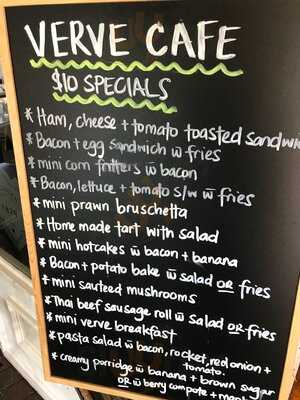 VERVE CAFE
$10 SPECIALS
* Ham, cheese + tomato toasted
* Bacon + egg sandwich w̄ fries
* mini corn fritters w̄ bacon
* Bacon, lettuce + tomato s/w w̄ fries
* mini prawn bruschetta
* Home made tart with salad
* mini hotcakes w̄ bacon + banana
* Bacon + potato bake w̄ salad OR fries
* mini sauteed mushrooms
* Thai beef sausage roll w̄ salad OR fries
* mini verve breakfast
* pasta salad w̄ bacon, rocket, red onion +
tomato.
* creamy porridge w̄ banana + brown sugar
OR w̄ berry compote +